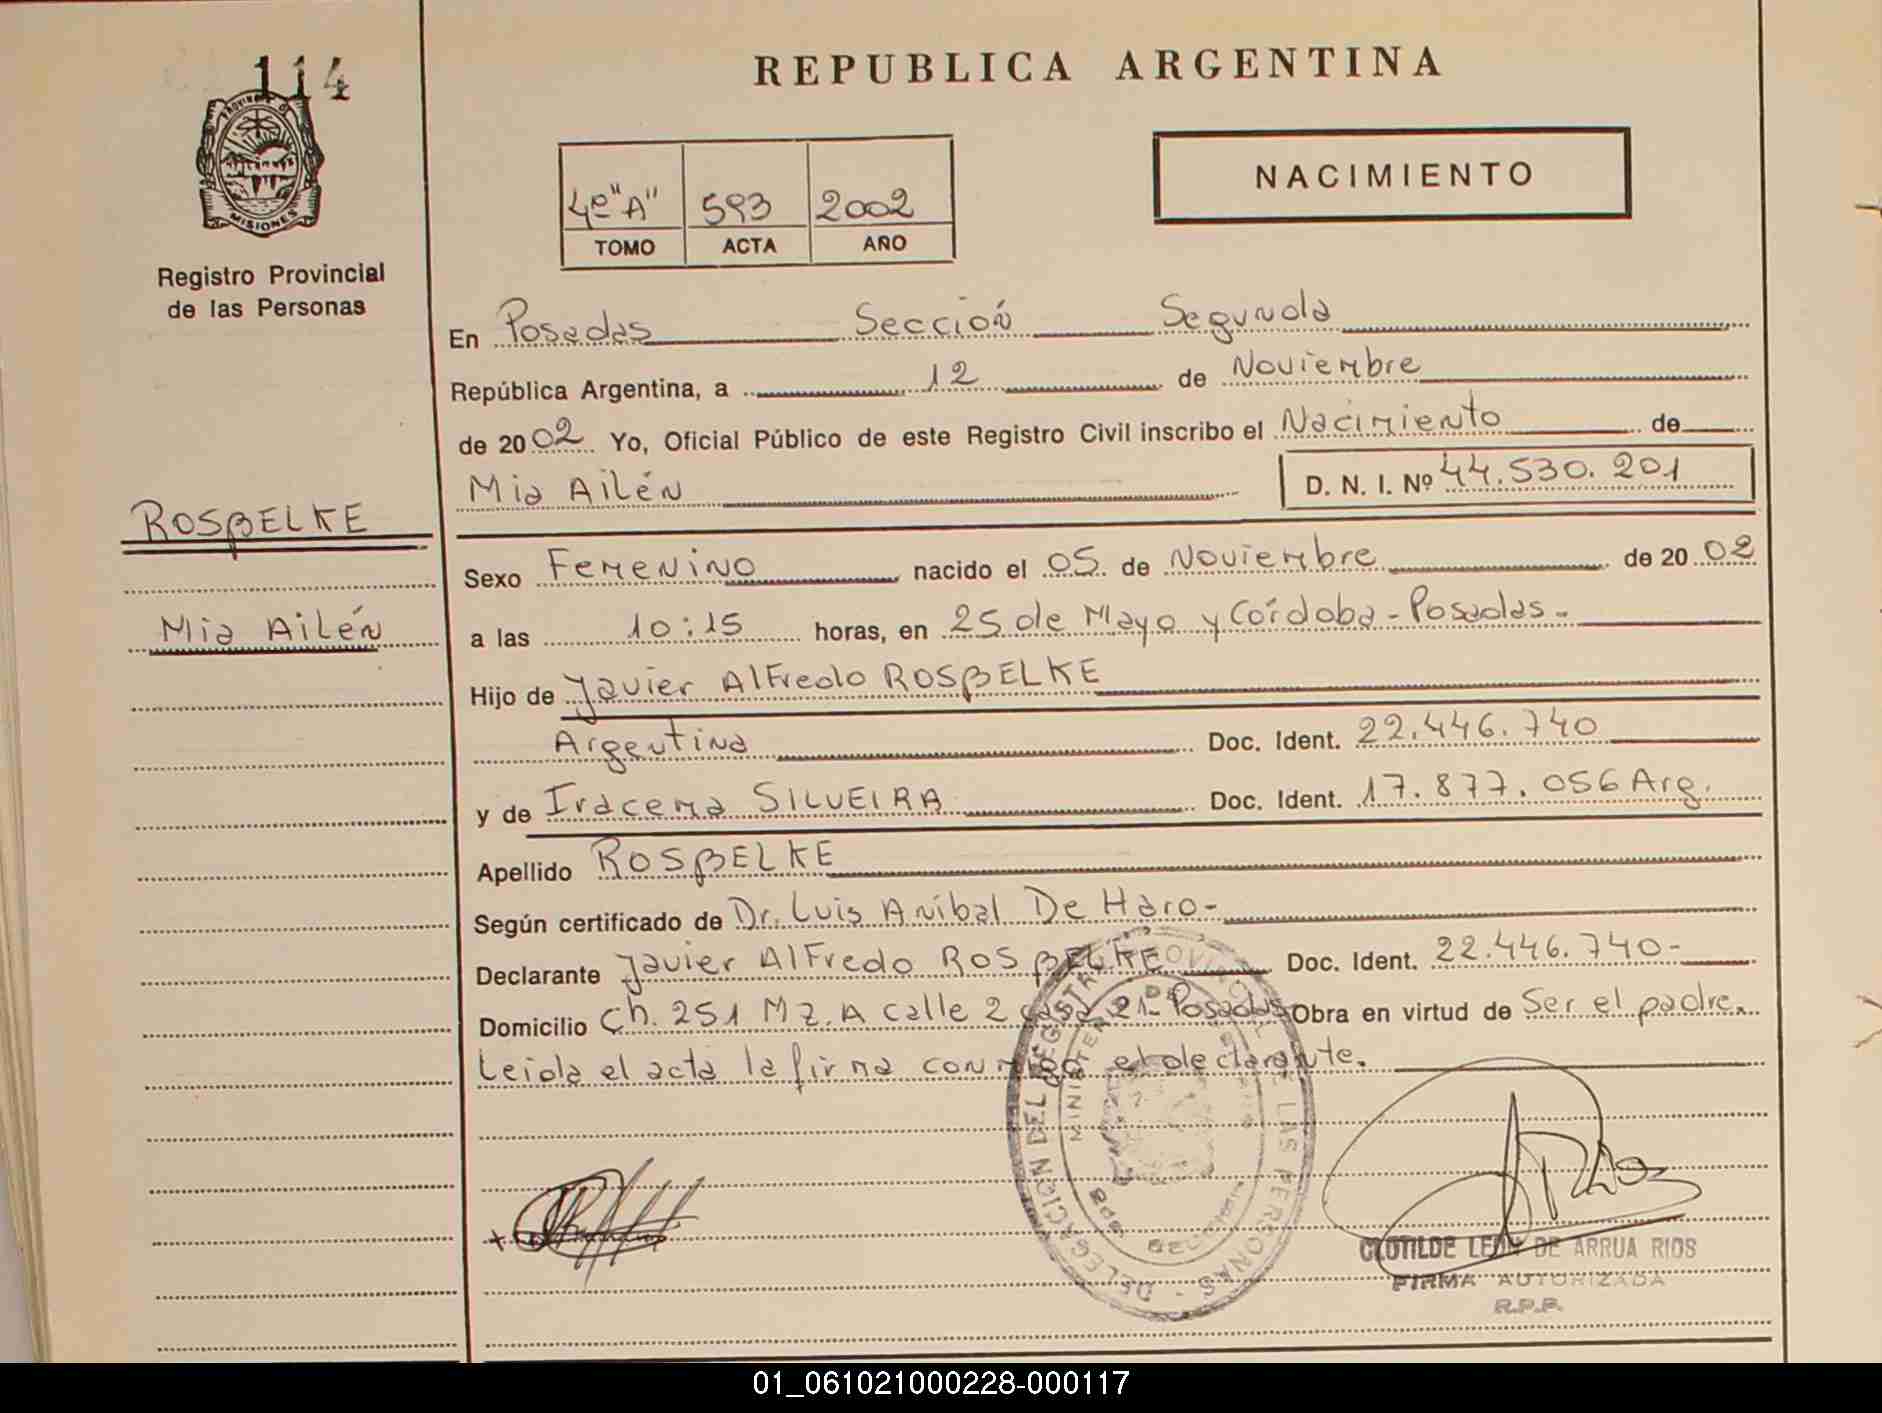 114
PROVINCIA DE
MISIONES
Registro Provincial
de las Personas
ROSβELKE
Mia Ailén
REPUBLICA ARGENTINA
4º "A" 593 2002
TOMO ACTA AÑO
NACIMIENTO
En Posadas Sección Segunda
República Argentina, a 12 de Noviembre
de 2002 Yo, Oficial Público de este Registro Civil inscribo el Nacimiento de
Mia Ailén D. N. I. Nº 44.530.201
Sexo Femenino nacido el 05 de Noviembre de 2002
a las 10:15 horas, en 25 de Mayo y Córdoba - Posadas -
Hijo de Javier Alfredo ROSβELKE
Argentina Doc. Ident. 22.446.740
y de Iracema SILVEIRA Doc. Ident. 17.877.056 Arg.
Apellido ROSβELKE
Según certificado de Dr. Luis Aníbal De Haro -
Declarante Javier Alfredo ROSβELKE Doc. Ident. 22.446.740-
Domicilio Ch. 251 Mz. A calle 2 casa 21- Posadas Obra en virtud de Ser el padre.
Leida el acta la firma conmigo el declarante.
DELEGACION DEL REGISTRO PROVINCIAL DE LAS PERSONAS
CLOTILDE LEON DE ARRUA RIOS
FIRMA AUTORIZADA
R.P.P.
01_061021000228-000117